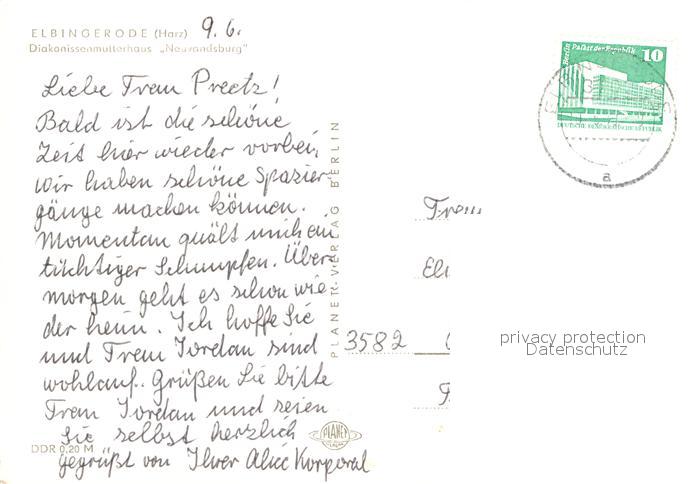 ELBINGERODE (Harz) 9.6.
Diakonissenmutterhaus „Neuvandsburg"
Liebe Frau Preetz!
Bald ist die schöne
Zeit hier wieder vorbei,
wir haben schöne Spazier-
gänge machen können.
Momentan quält mich ein
tüchtiger Schnupfen. Über-
morgen geht es schon wie-
der heim. Ich hoffe Sie
und Frau Jordan sind
wohlauf. Grüßen Sie bitte
Frau Jordan und seien
Sie selbst herzlich
gegrüßt von Ihrer Alice Korporal
DDR 0,20 M
PLANET-VERLAG BERLIN
PLANET
Berlin Palast der Republik 10
DEUTSCHE DEMOKRATISCHE REPUBLIK
a
Frau
Eli
3582
privacy protection
Datenschutz